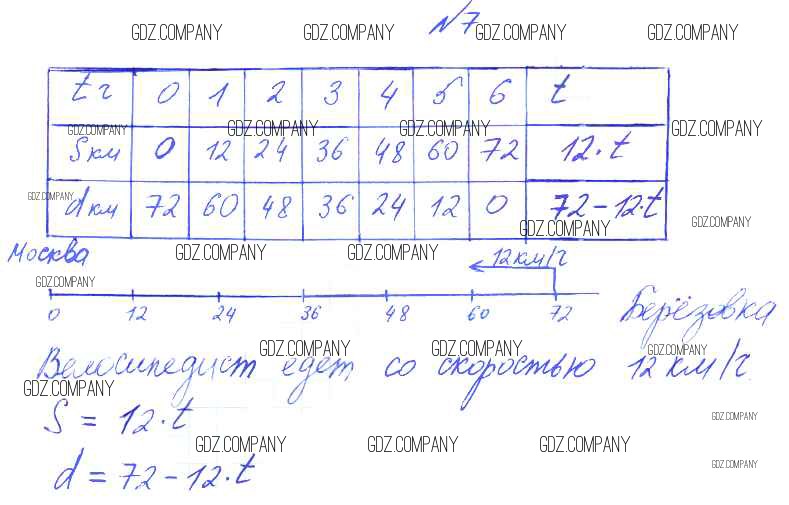 GDZ.COMPANY GDZ.COMPANY №7 GDZ.COMPANY GDZ.COMPANY
t г 0 1 2 3 4 5 6 t
GDZ.COMPANY GDZ.COMPANY GDZ.COMPANY GDZ.COMPANY
S км 0 12 24 36 48 60 72 12·t
GDZ.COMPANY
d км 72 60 48 36 24 12 0 72-12·t
GDZ.COMPANY GDZ.COMPANY
Москва GDZ.COMPANY GDZ.COMPANY 12км/г
GDZ.COMPANY
0 12 24 36 48 60 72 Берёзовка
GDZ.COMPANY GDZ.COMPANY GDZ.COMPANY
Велосипедист едет со скоростью 12 км/г.
GDZ.COMPANY
S = 12·t
GDZ.COMPANY
GDZ.COMPANY GDZ.COMPANY GDZ.COMPANY
d = 72-12·t
GDZ.COMPANY